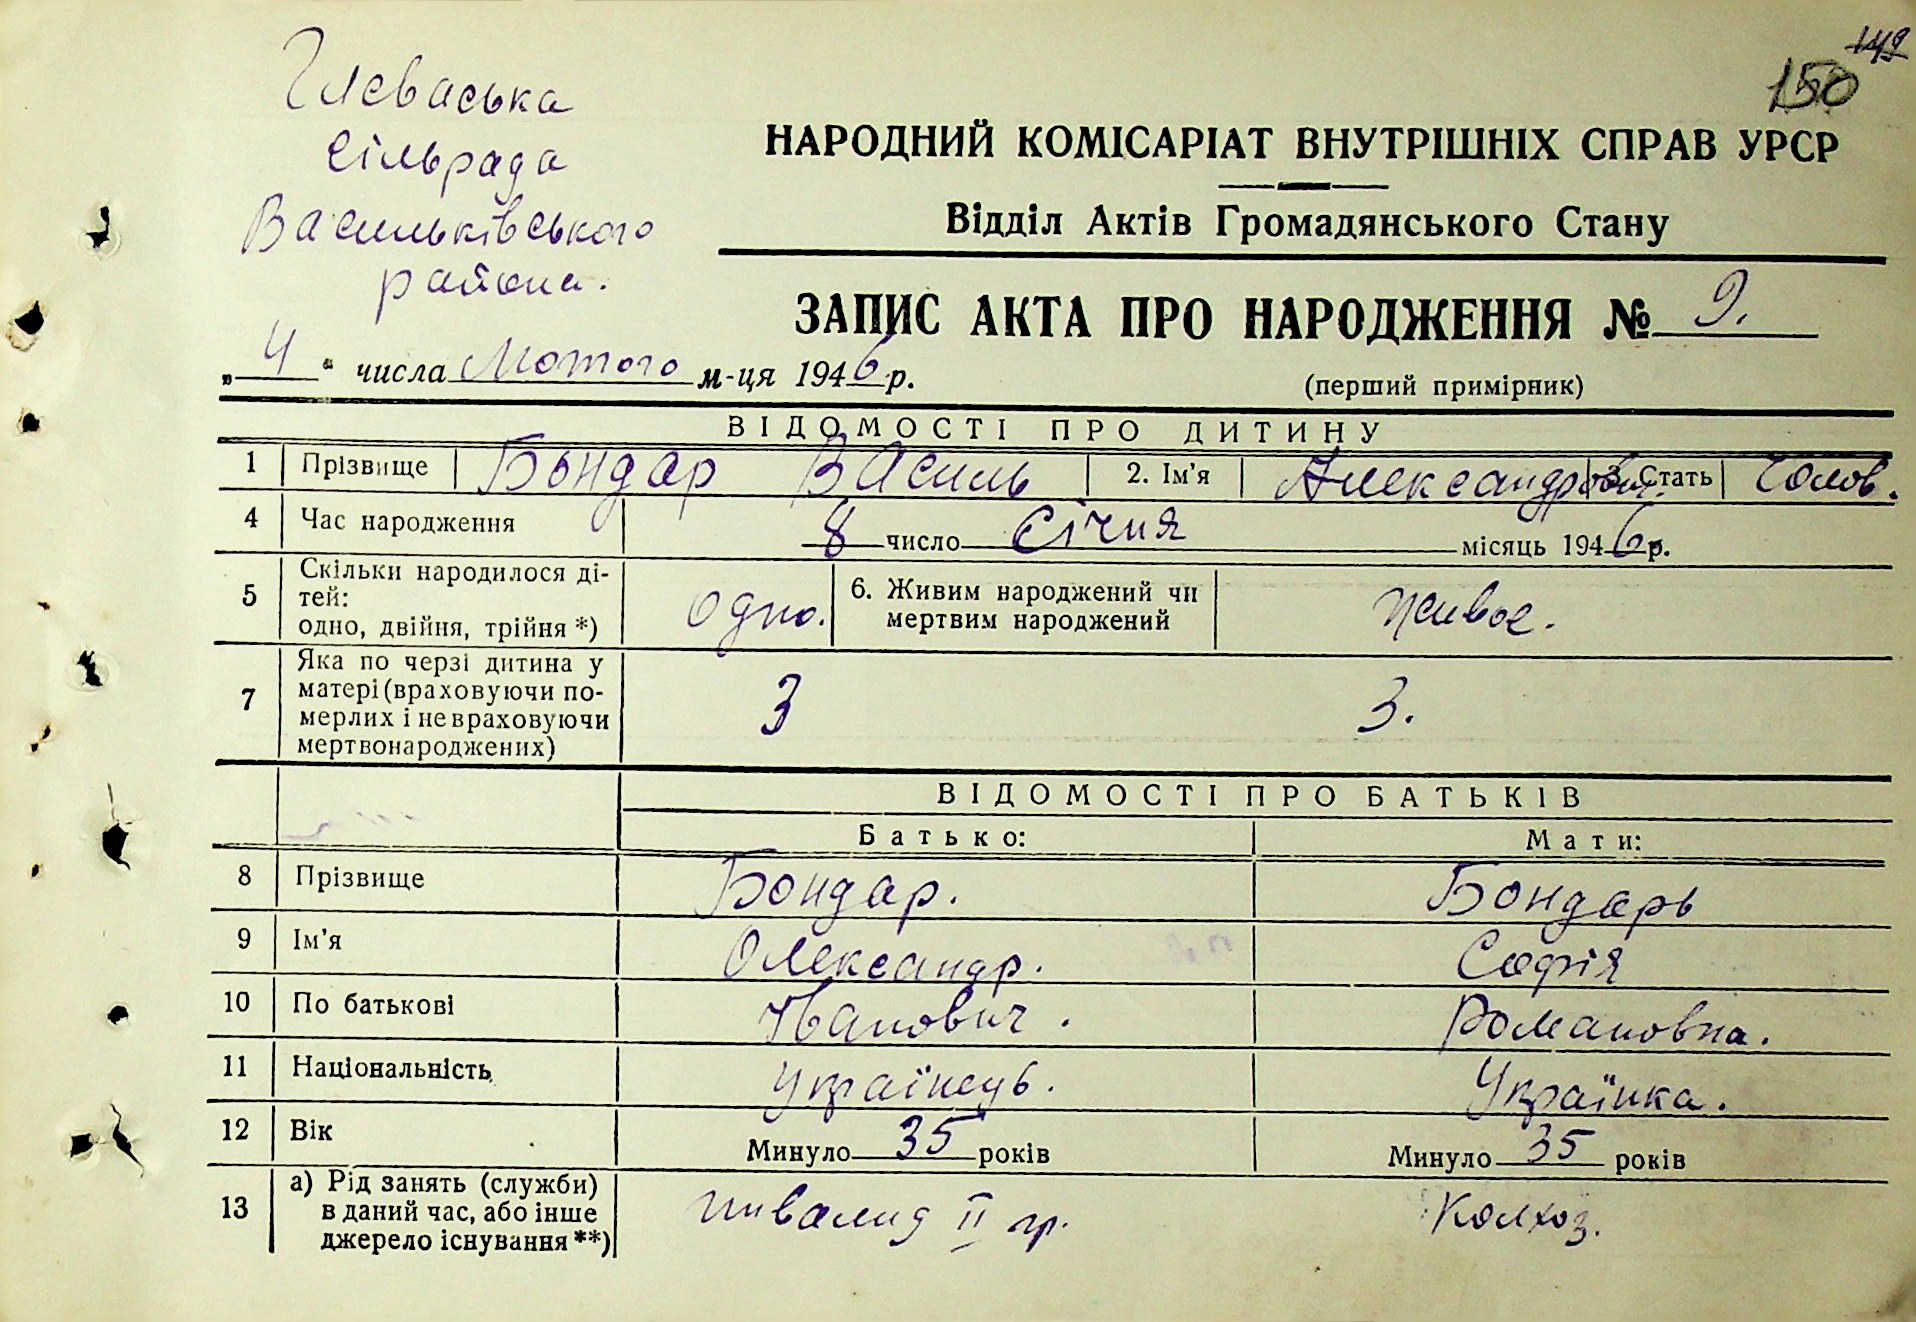 149
150
Глеваська
сільрада
Васильківського
района.
НАРОДНИЙ КОМІСАРІАТ ВНУТРІШНІХ СПРАВ УРСР
Відділ Актів Громадянського Стану
ЗАПИС АКТА ПРО НАРОДЖЕННЯ № 9.
„4“ числа Лютого м-ця 1946 р.
(перший примірник)
ВІДОМОСТІ ПРО ДИТИНУ
1 Прізвище Бондар Василь 2. Ім'я Александрович. 3. Стать Чолов.
4 Час народження 8 число Січня місяць 1946 р.
5 Скільки народилося ді-
тей:
одно, двійня, трійня *) одно. 6. Живим народжений чи
мертвим народжений живое.
7 Яка по черзі дитина у
матері (враховуючи по-
мерлих і не враховуючи
мертвонароджених) 3 3.
ВІДОМОСТІ ПРО БАТЬКІВ
Батько: Мати:
8 Прізвище Бондар. Бондарь
9 Ім'я Олександр. Софія
10 По батькові Іванович. Романовна.
11 Національність Українець. Українка.
12 Вік Минуло 35 років Минуло 35 років
13 а) Рід занять (служби)
в даний час, або інше
джерело існування **) инвалид II гр. Колхоз.